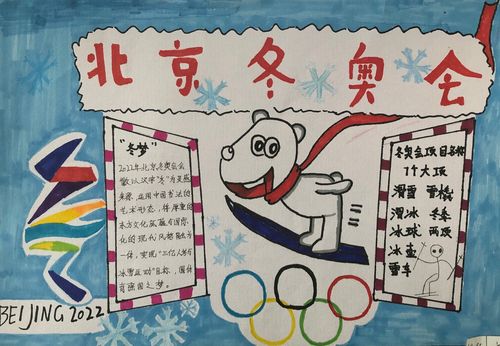 北京冬奥会
"冬梦"
2022年北京冬奥会会
徽以汉字"冬"为灵感
来源,运用中国书法的
艺术形态,将厚重的
东方文化底蕴与国际
化的现代风格融为
一体,实现"三亿人参与
冰雪运动"目标,圆体
育强国之梦。
冬奥会项目名称
7个大项
滑雪 雪橇
滑冰 冬季
冰球 两项
冰壶
雪车
BEIJING 2022